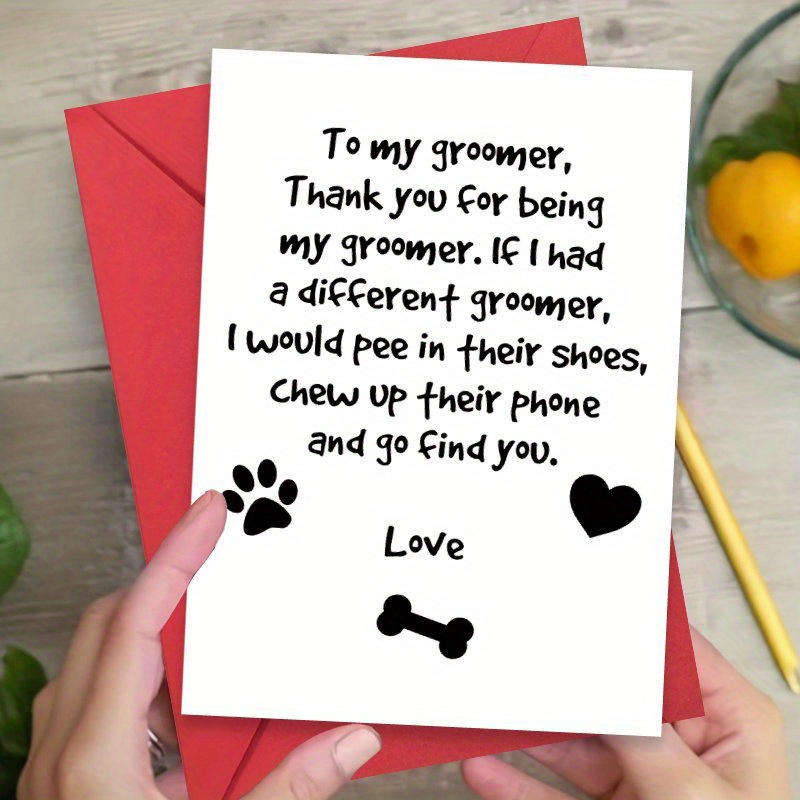 To my groomer,
Thank you for being
my groomer. If I had
a different groomer,
I would pee in their shoes,
Chew up their phone
and go find you.
Love